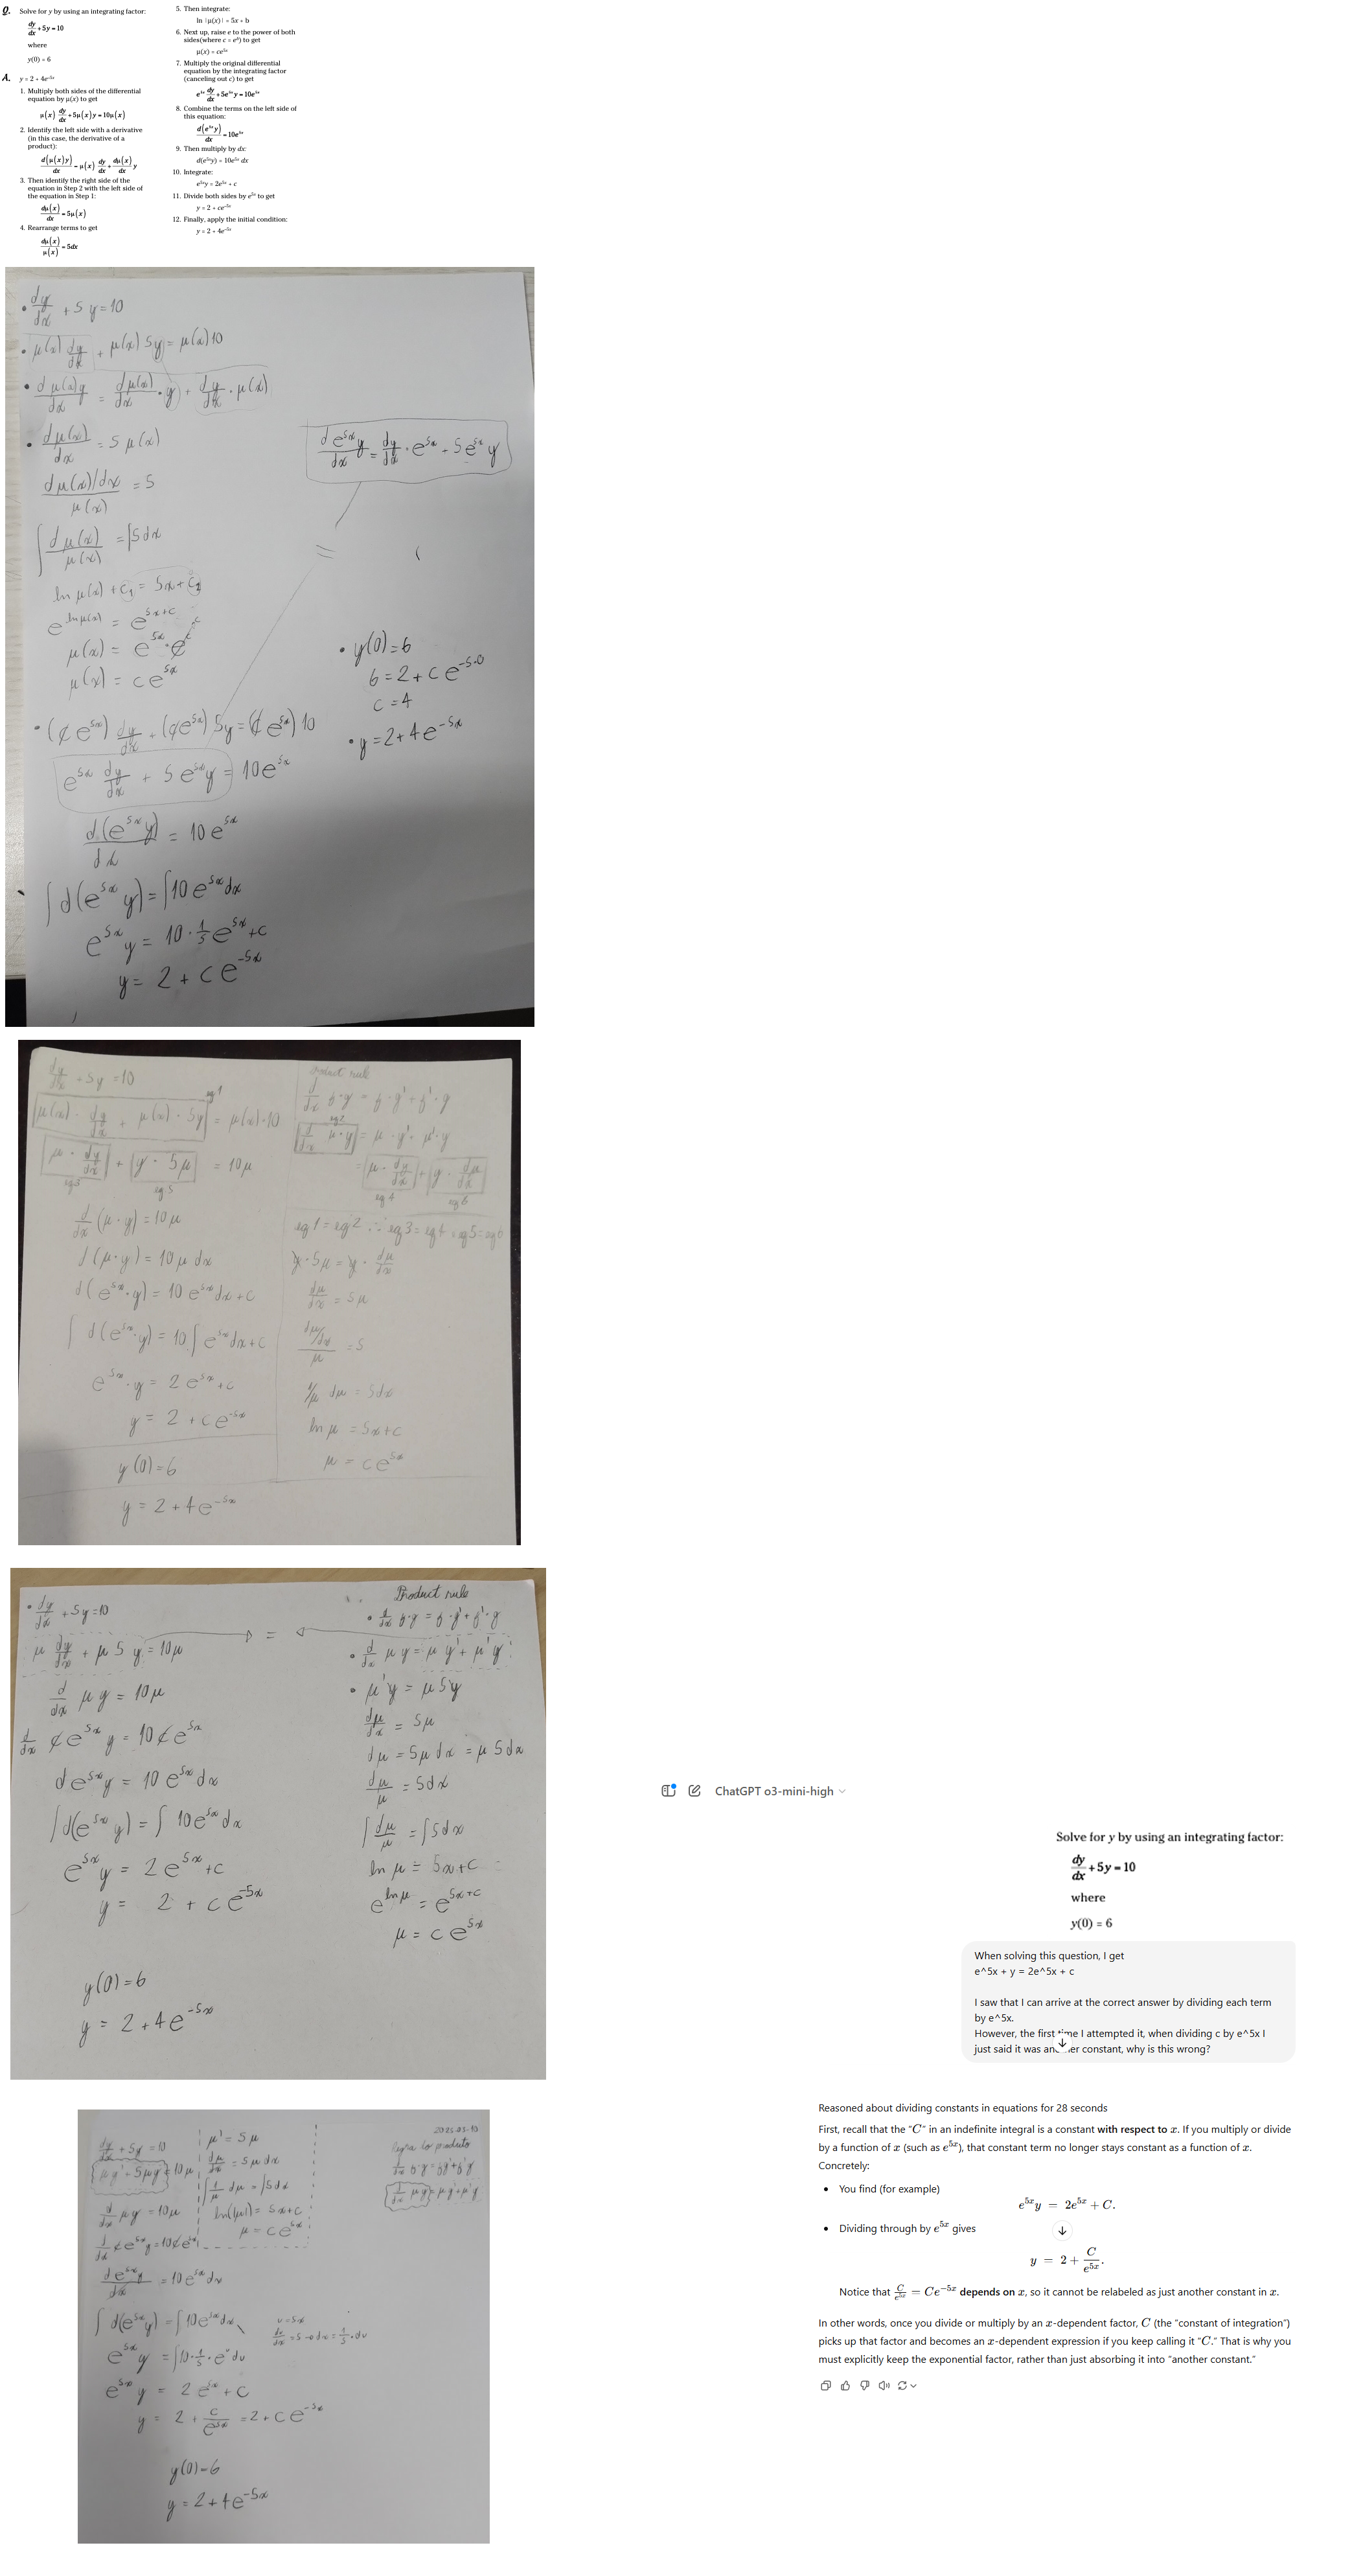 Q. Solve for y by using an integrating factor:
dy/dx + 5y = 10
where
y(0) = 6
A. y = 2 + 4e^-5x
1. Multiply both sides of the differential
equation by μ(x) to get
μ(x) dy/dx + 5μ(x)y = 10μ(x)
2. Identify the left side with a derivative
(in this case, the derivative of a
product):
d(μ(x)y)/dx = μ(x) dy/dx + dμ(x)/dx y
3. Then identify the right side of the
equation in Step 2 with the left side of
the equation in Step 1:
dμ(x)/dx = 5μ(x)
4. Rearrange terms to get
dμ(x)/μ(x) = 5dx
5. Then integrate:
ln |μ(x)| = 5x + b
6. Next up, raise e to the power of both
sides(where c = e^b) to get
μ(x) = ce^5x
7. Multiply the original differential
equation by the integrating factor
(canceling out c) to get
e^5x dy/dx + 5e^5x y = 10e^5x
8. Combine the terms on the left side of
this equation:
d(e^5x y)/dx = 10e^5x
9. Then multiply by dx:
d(e^5x y) = 10e^5x dx
10. Integrate:
e^5x y = 2e^5x + c
11. Divide both sides by e^5x to get
y = 2 + ce^-5x
12. Finally, apply the initial condition:
y = 2 + 4e^-5x
• dy/dx + 5y = 10
• μ(x) dy/dx + μ(x) 5y = μ(x) 10
• d μ(x)y/dx = dμ(x)/dx • y + dy/dx • μ(x)
• dμ(x)/dx = 5 μ(x)
dμ(x)/dx / μ(x) = 5
∫ dμ(x)/μ(x) = ∫5dx
ln μ(x) + c1 = 5x + c2
e^ln μ(x) = e^5x+c
μ(x) = e^5x • e^c
μ(x) = c e^5x
• (c e^5x) dy/dx + (c e^5x) 5y = (c e^5x) 10
e^5x dy/dx + 5 e^5x y = 10 e^5x
d(e^5x y)/dx = 10 e^5x
∫d(e^5x y) = ∫10 e^5x dx
e^5x y = 10 • 1/5 e^5x + c
y = 2 + c e^-5x
d e^5x y/dx = dy/dx • e^5x + 5e^5x y
=
• y(0) = 6
6 = 2 + c e^-5•0
c = 4
• y = 2 + 4 e^-5x
dy/dx + 5y = 10
eq 1
μ(x) • dy/dx + μ(x) • 5y = μ(x) • 10
μ • dy/dx + y • 5μ = 10μ
eq 3 eq 5
d/dx (μ • y) = 10μ
d(μ • y) = 10 μ dx
d(e^5x • y) = 10 e^5x dx + c
∫ d(e^5x • y) = 10 ∫ e^5x dx + c
e^5x • y = 2 e^5x + c
y = 2 + c e^-5x
y(0) = 6
y = 2 + 4 e^-5x
Product rule
d/dx f • g = f • g' + f' • g
eq 2
d/dx μ • y = μ • y' + μ' • y
= μ • dy/dx + y • dμ/dx
eq 4 eq 6
eq 1 = eq 2 ∴ eq 3 = eq 4 ∴ eq 5 = eq 6
y • 5μ = y • dμ/dx
dμ/dx = 5μ
dμ/dx / μ = 5
1/μ dμ = 5dx
ln μ = 5x + c
μ = c e^5x
• dy/dx + 5y = 10
μ dy/dx + μ 5 y = 10μ
=
d/dx μ y = 10μ
d/dx c e^5x y = 10 c e^5x
d e^5x y = 10 e^5x dx
∫d(e^5x y) = ∫ 10 e^5x dx
e^5x y = 2 e^5x + c
y = 2 + c e^-5x
y(0) = 6
y = 2 + 4 e^-5x
Product rule
• d/dx f • g = f • g' + f' • g
• d/dx μ y = μ y' + μ' y
• μ' y = μ 5 y
dμ/dx = 5μ
dμ = 5μ dx = μ 5 dx
dμ/μ = 5dx
∫ dμ/μ = ∫5dx
ln μ = 5x + c
e^ln μ = e^5x+c
μ = c e^5x
ChatGPT o3-mini-high
Solve for y by using an integrating factor:
dy/dx + 5y = 10
where
y(0) = 6
When solving this question, I get
e^5x + y = 2e^5x + c
I saw that I can arrive at the correct answer by dividing each term
by e^5x.
However, the first time I attempted it, when dividing c by e^5x I
just said it was another constant, why is this wrong?
Reasoned about dividing constants in equations for 28 seconds
First, recall that the "C" in an indefinite integral is a constant with respect to x. If you multiply or divide
by a function of x (such as e^5x), that constant term no longer stays constant as a function of x.
Concretely:
• You find (for example)
e^5x y = 2e^5x + C.
• Dividing through by e^5x gives
y = 2 + C/e^5x.
Notice that C/e^5x = Ce^-5x depends on x, so it cannot be relabeled as just another constant in x.
In other words, once you divide or multiply by an x-dependent factor, C (the "constant of integration")
picks up that factor and becomes an x-dependent expression if you keep calling it "C." That is why you
must explicitly keep the exponential factor, rather than just absorbing it into "another constant."
dy/dx + 5y = 10
μ y' + 5μy = 10μ
d/dx μy = 10μ
d/dx c e^5x y = 10 c e^5x
d e^5x y/dx = 10 e^5x dx
∫ d(e^5x y) = ∫10 e^5x dx
e^5x y = ∫10 • 1/5 • e^u du
e^5x y = 2 e^5x + c
y = 2 + c/e^5x = 2 + c e^-5x
y(0) = 6
y = 2 + 4 e^-5x
μ' = 5 μ
dμ/dx = 5 μ dx
∫ 1/μ dμ = ∫5dx
ln(|μ|) = 5x + c
μ = c e^5x
u = 5x
du/dx = 5 → dx = 1/5 • du
2025-03-10
Regra do produto
d/dx f•g = fg' + f'g
d/dx μy = μy' + μ'y